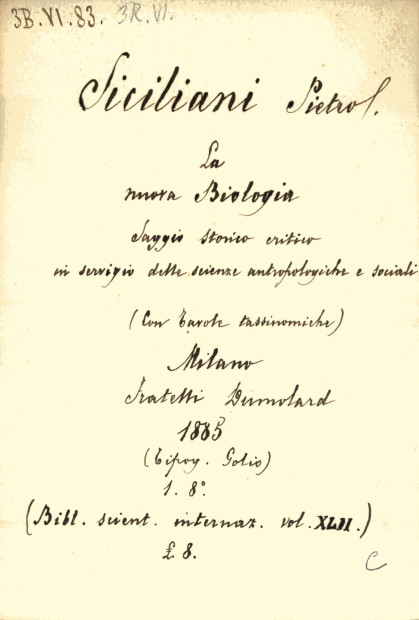 3B.VI.83. 3R.VI.
Siciliani Pietro.
La
nuova Biologia
Saggio storico critico
in servigio delle scienze antropologiche e sociali
(Con Tavole tassinomiche)
Milano
Fratelli Dumolard
1885
(Tipog. Golio)
1. 8°.
(Bibl. scient. internaz. vol. XLII.)
£. 8.
C